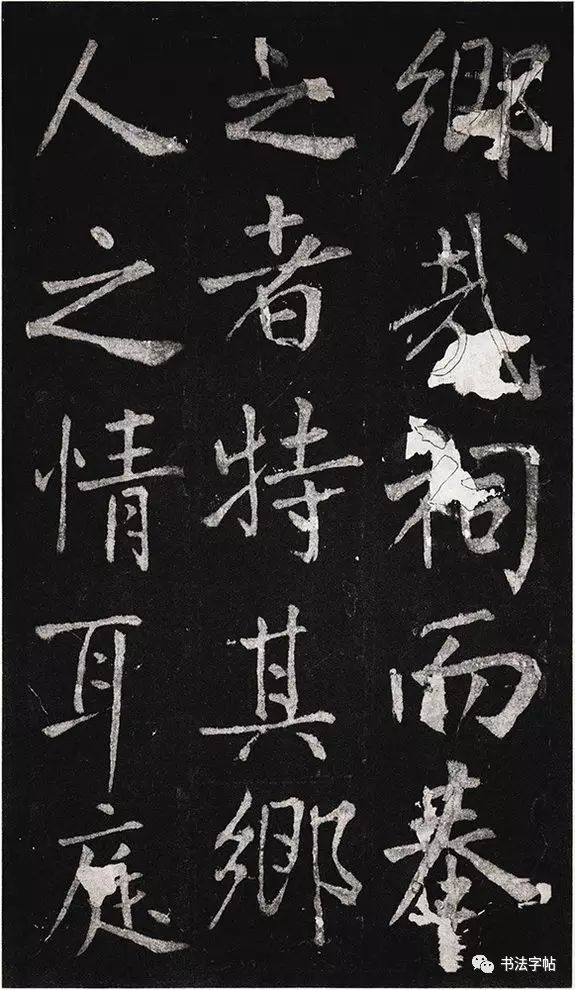 鄉哉祠而奉
之者特其鄉
人之情耳庭
书法字帖